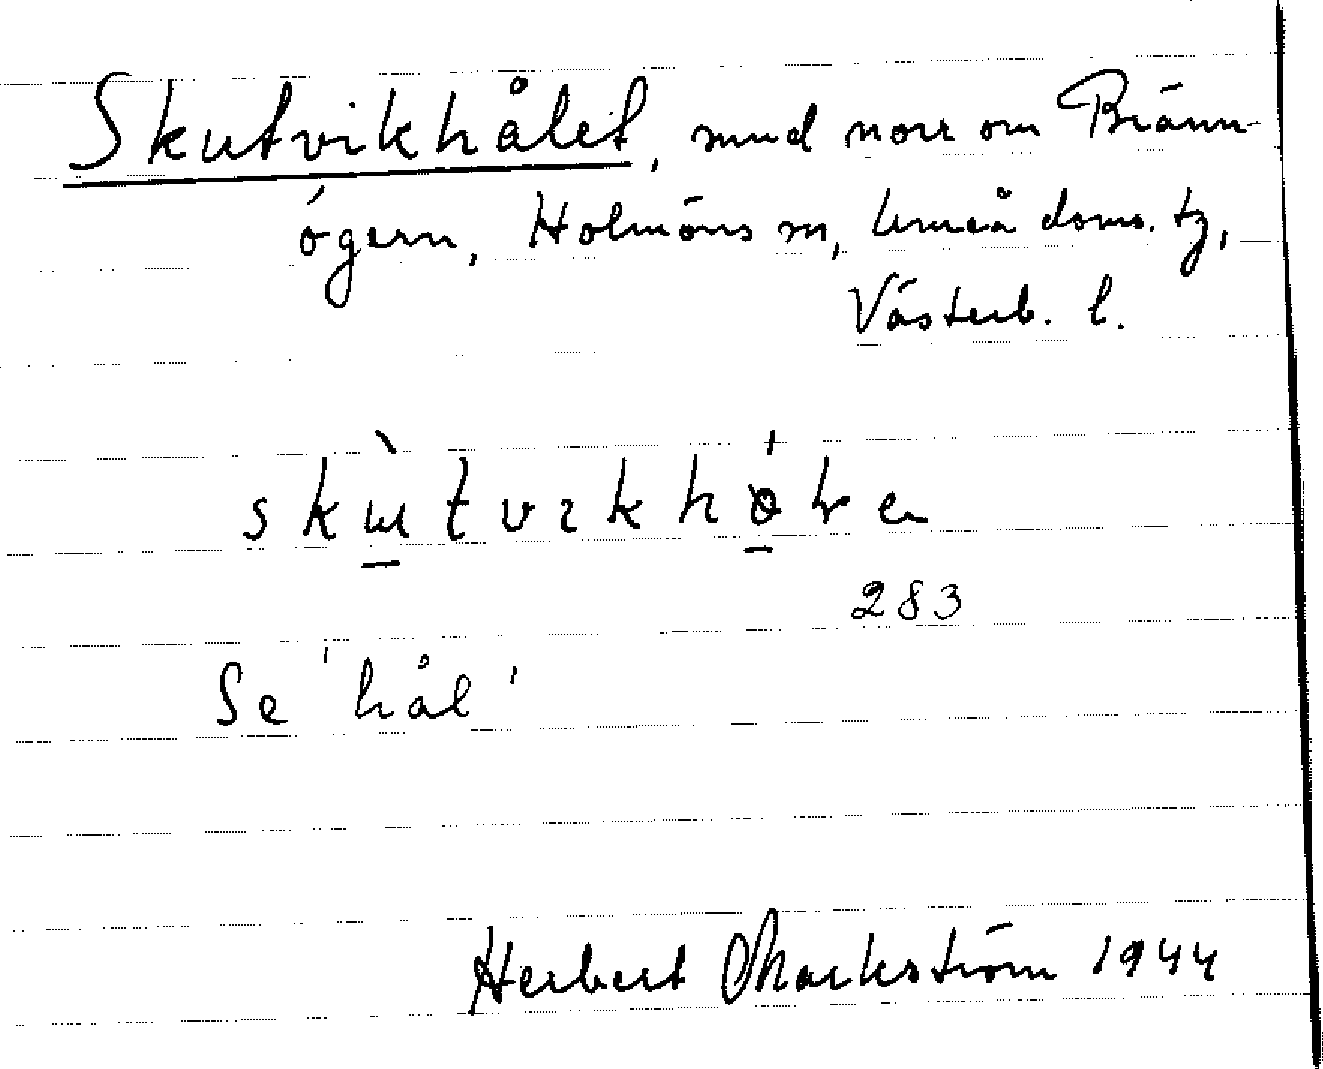 Skutvikhålet, sund norr om Bränn-
ögern, Holmöns sn, Umeå doms. tg,
Västerb. l.
283
Se 'hål'
Herbert Markström 1944